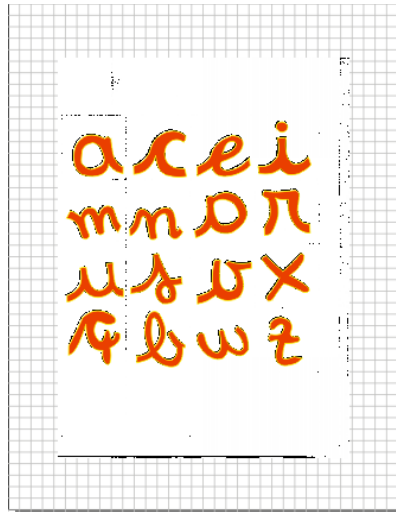 a c e i
m n o r
u s v x
b w z